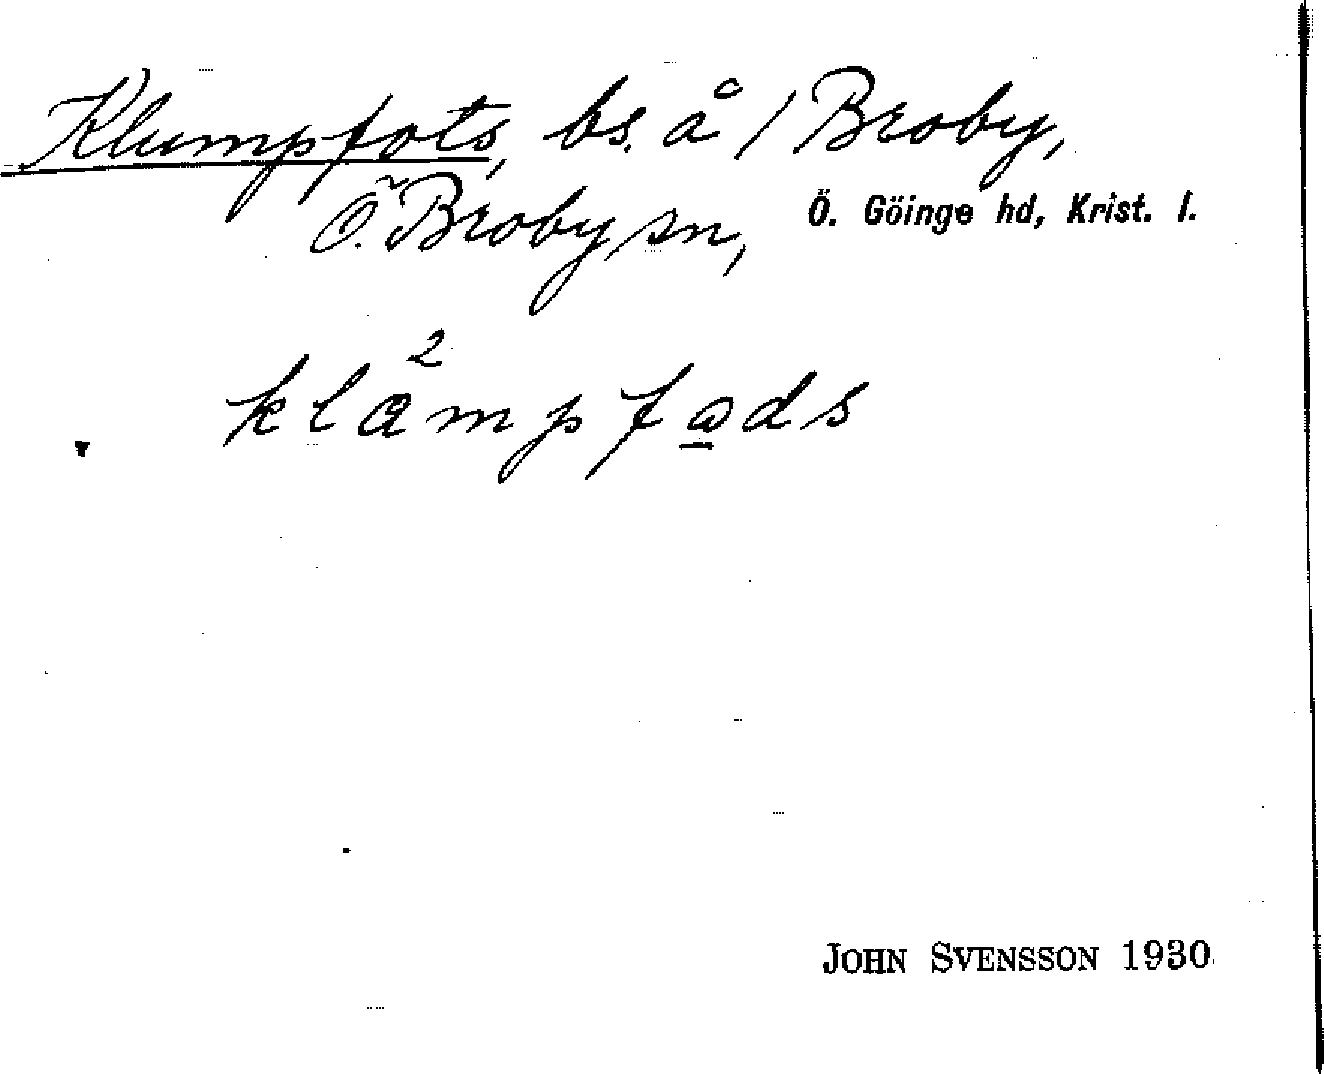 Klumpfots, bs. å / Broby,
Ö. Broby sn, Ö. Göinge hd, Krist. l.
2
klåmpfods
JOHN SVENSSON 1930